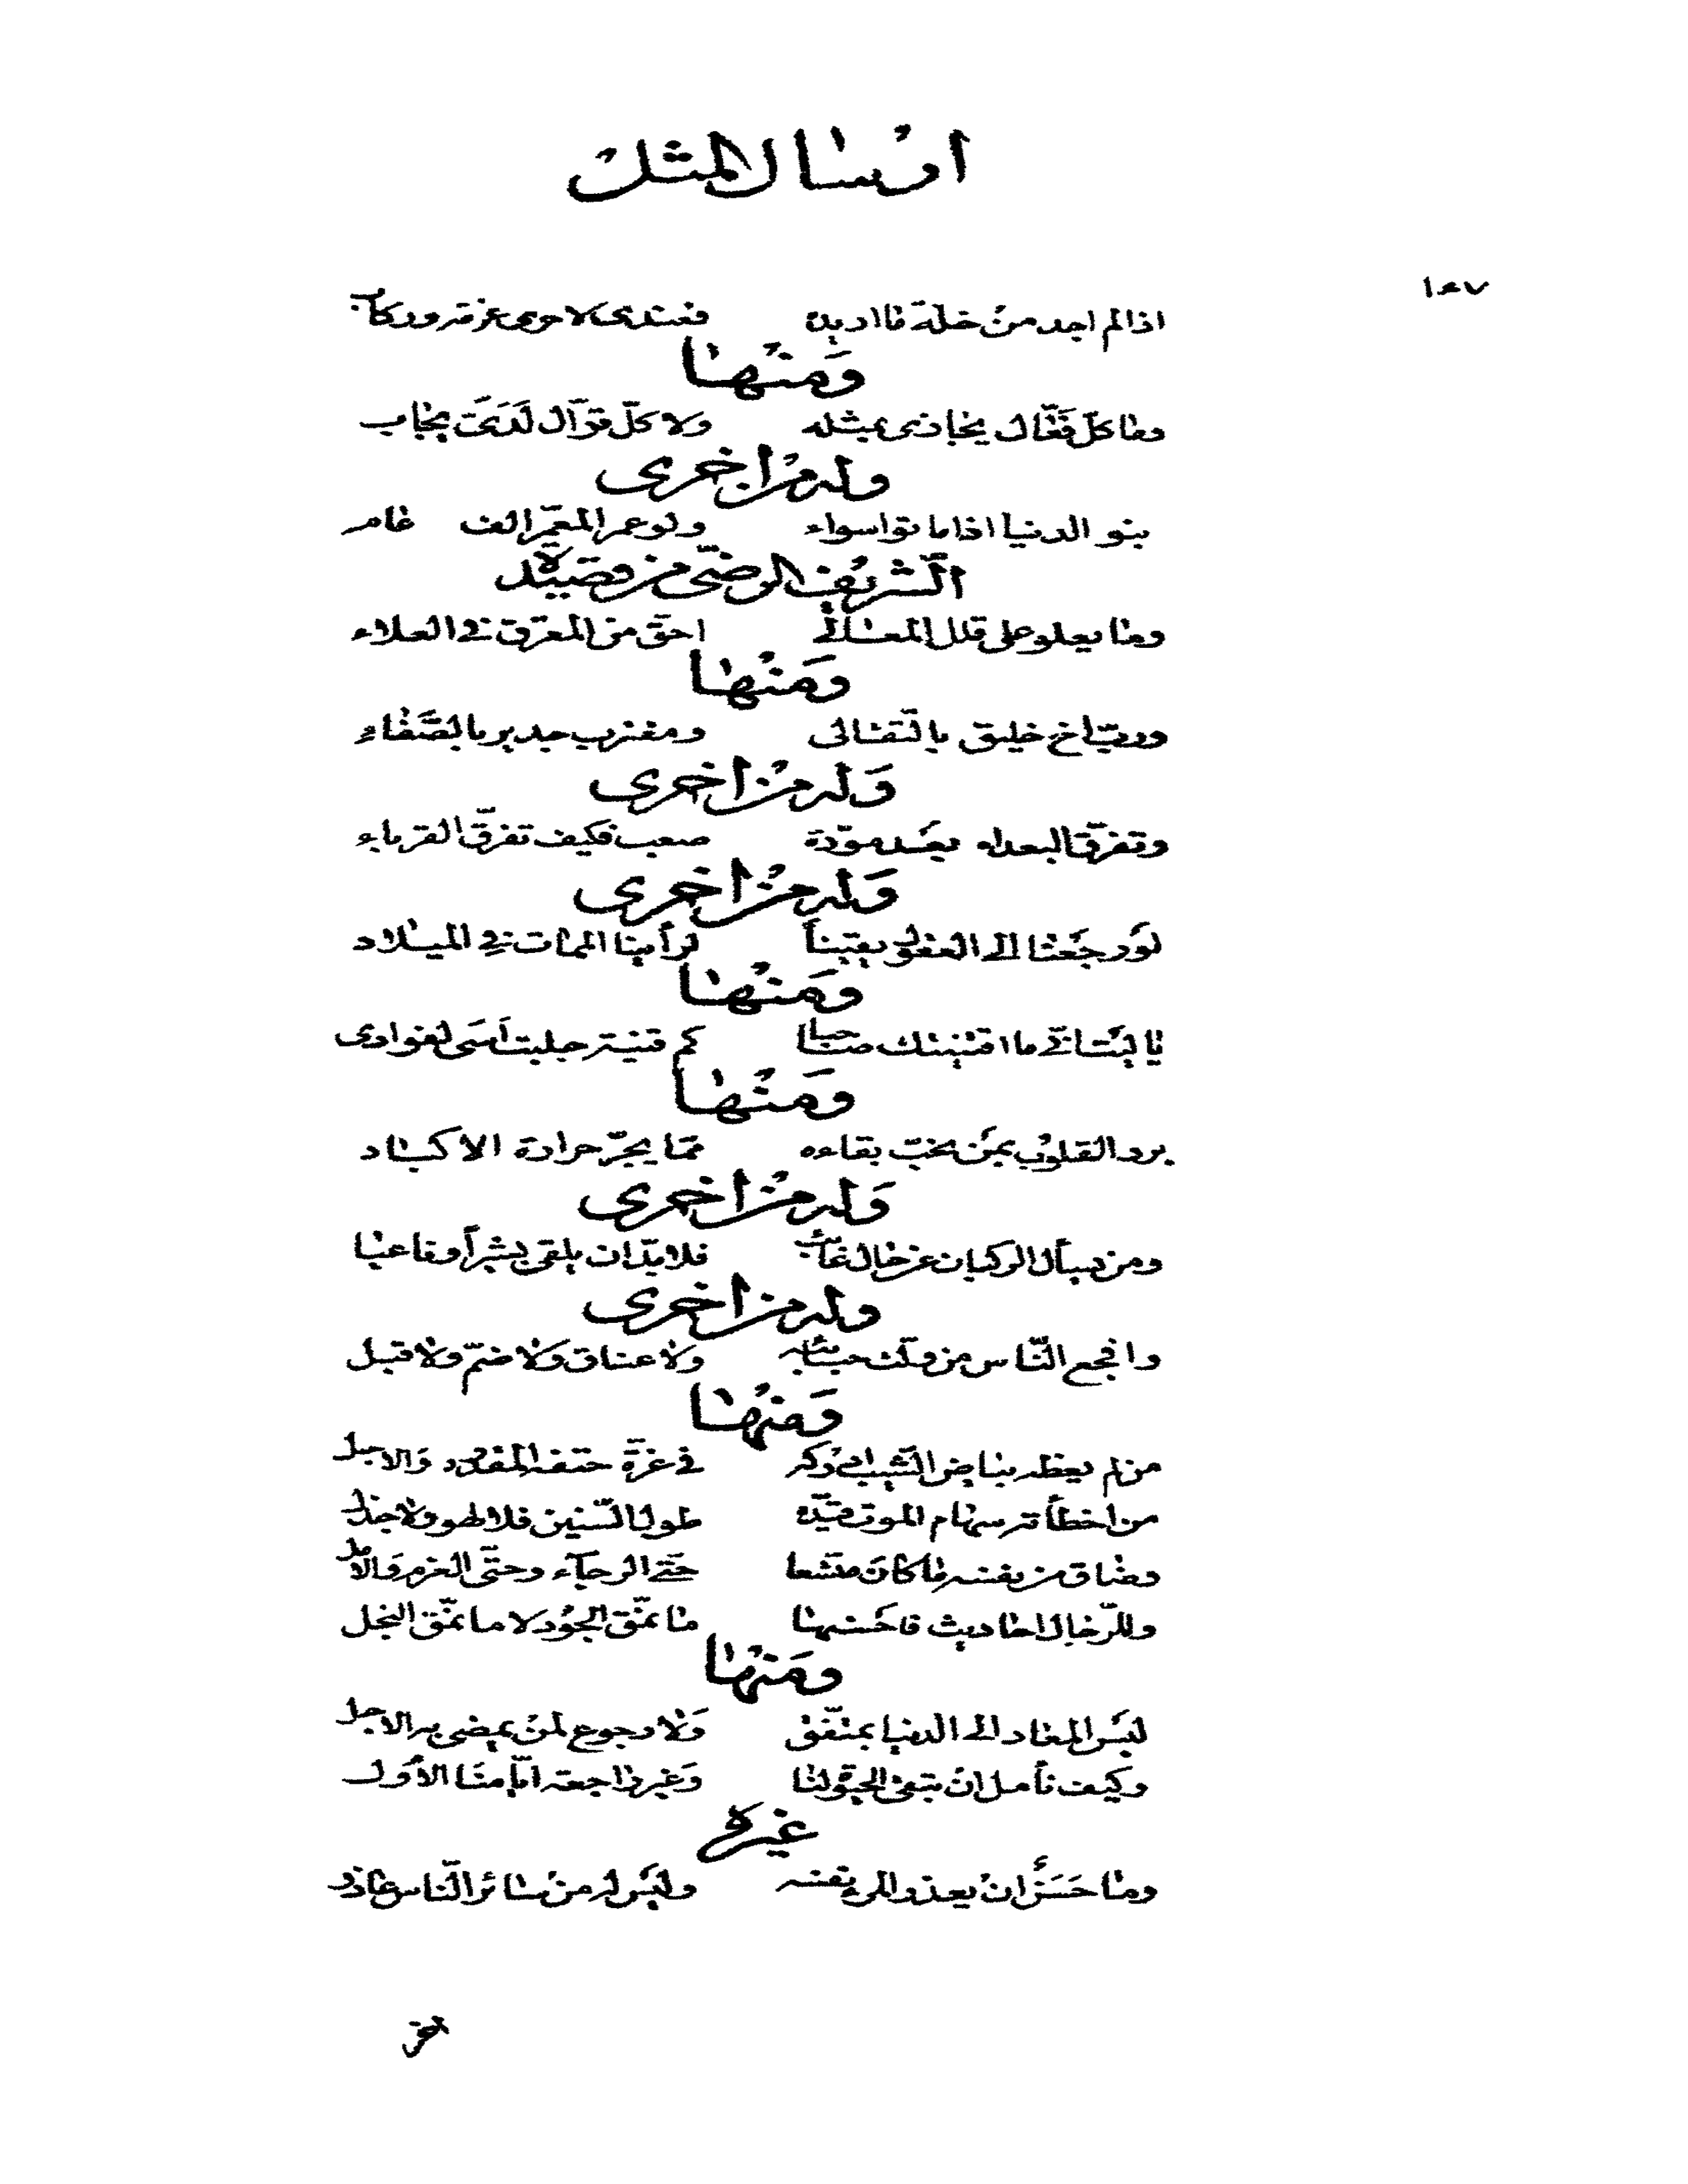 ارسال المثل
١٠٧
اذا لم اجد من خلة ما اريده فعندى لاخرى عزمة وركاب
ومنها
وما كلّ فعّال يجازى بمثله ولا كلّ قوّال لدىّ يجاب
وله من اخرى
بنو الدنيا اذا ماتوا سواء ولو عمر المعمّر الف عام
الشريف الرضى من قصيدة
وما يعلو على قلل المعالى احقّ من المعرق فى العلاء
ومنها
وربّ اخ خليق بالتّقالى ومغترب جدير بالصّفاء
وله من اخرى
وتفرّق البعداء بعد مودّة صعب فكيف تفرّق القرباء
وله من اخرى
لو رجعنا الى العقول يقيناً لرأينا الممات فى الميلاد
ومنها
يا ليت انى ما اقتنيتك صاحبا كم قنية جلبت اسى لفوادى
ومنها
برد القلوب بمن تحبّ بقاءه ممّا يجرّ حرارة الاكباد
وله من اخرى
ومن يسأل الركبان عن حال غائب فلا بدّ ان يلقى بشيراً وناعيا
وله من اخرى
وافجع النّاس من ولّت حبائبه ولا عناق ولا ضمّ ولا قبل
ومنها
من لم يعظه بياض الشّيب ادركه فى غرّة حتفه المقدور والاجل
من اخطأته سهام الموت قيّده طول السّنين فلا لهو ولا جذل
وضاق من نفسه ما كان متّسعا حتّى الرجآء وحتّى العزم والامل
وللرّجال احاديث فاحسنها ما نمّق الجود لا ما نمّق البخل
ومنها
ليس المعاد الى الدنيا بمتّفق ولا رجوع لمن يمضى به الاجل
وكيف نأمل ان تبقى الحيوة لنا وغير راجعة ايّامنا الأول
غيره
وما حسن ان يعذر المرء نفسه وليس له من سائر النّاس عاذر